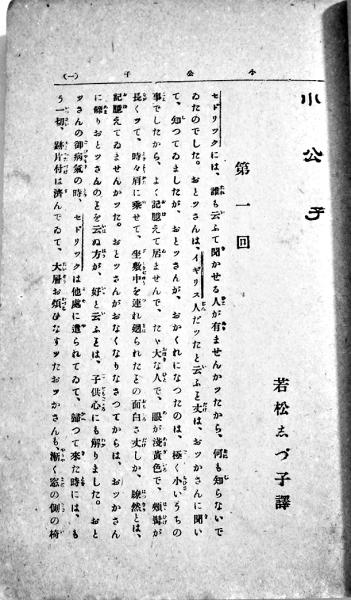 小公子
(一)
小公子
若松しづ子譯
第一回
セドリックには、誰も云ふて聞かせる人が有ませんかつたから、何も知らないで
ゐたのでした。おとツさんは、イギリス人だツたと云ふこと丈は、おツかさんに聞い
て、知つてゐましたが、おとツさんが、おかくれになつたのは、極く小いうちの
事でしたから、よく記臆えて居ませんで、たゞ大な人で、眼が淺黄色で、頬髯が
長くツて、時々肩に乘せて、坐敷中を連れ廻られたことの面白さ丈しか、瞭然とは、
記臆えてゐませんかツた。おとツさんがおなくなりなさつてからは、おツかさん
に餘りおとツさんのことを云ぬ方が、好と云ふことは、子供心にも解りました。おと
ツさんの御病氣の時、セドリックは他處に遣られてゐて、歸つて來た時には、も
う一切、跡片付は濟んでゐて、大層お煩ひなすツたおツかさんも、漸く窓の側の椅